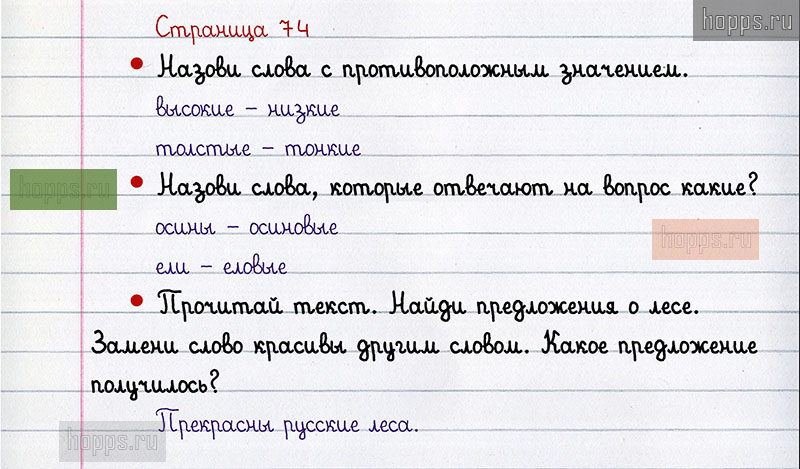 Страница 74
hopps.ru
• Назови слова с противоположным значением.
высокие – низкие
толстые – тонкие
hopps.ru
• Назови слова, которые отвечают на вопрос какие?
осины – осиновые
hopps.ru
ели – еловые
• Прочитай текст. Найди предложения о лесе.
Замени слово красивы другим словом. Какое предложение
получилось?
Прекрасны русские леса.
hopps.ru